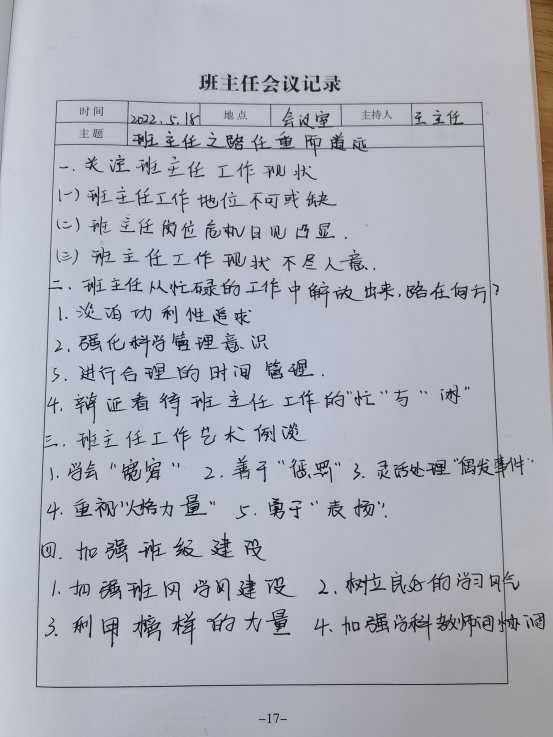 班主任会议记录
时间 2022.5.18 地点 会议室 主持人 王主任
主题 班主任之路任重而道远
一. 关注班主任工作现状
(一) 班主任工作地位不可或缺
(二) 班主任岗位危机日见凸显.
(三) 班主任工作现状不尽人意.
二. 班主任从忙碌的工作中解放出来,路在何方?
1. 淡泊功利性追求
2. 强化科学管理意识
3. 进行合理的时间管理.
4. 辩证看待班主任工作的"忙"与"闲"
三. 班主任工作艺术例谈
1. 学会"宽容" 2. 善于"惩罚" 3. 灵活处理"偶发事件"
4. 重视"人格力量" 5. 勇于"表扬".
四. 加强班级建设
1. 加强班风学风建设 2. 树立良好的学习风气
3. 利用榜样的力量 4. 加强学科教师间协调
-17-